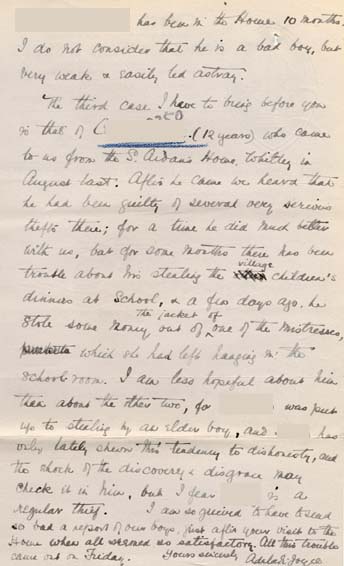 has been in the Home 10 months.
I do not consider that he is a bad boy, but
very weak & easily led astray.
The third case I have to bring before you
is that of (12 years) who came
to us from the St. Aidans Home, Whitley in
August last. After he came we heard that
he had been guilty of several very serious
thefts there; for a time he did much better
with us, but for some months there has been
trouble about his stealing the village children's
dinners at School, & a few days ago he
stole some money out of the jacket of one of the Mistresses,
which she had left hanging in the
School-room. I am less hopeful about him
than about the other two, for was put
up to stealing by an elder boy, and has
only lately shewn this tendency to dishonesty, and
the shock of the discovery & disgrace may
check it in him, but I fear is a
regular thief. I am so grieved to have to send
so bad a report of our boys, just after your visit to the
Home when all seemed so satisfactory. All this trouble
came out on Friday. Yours sincerely
Joyce